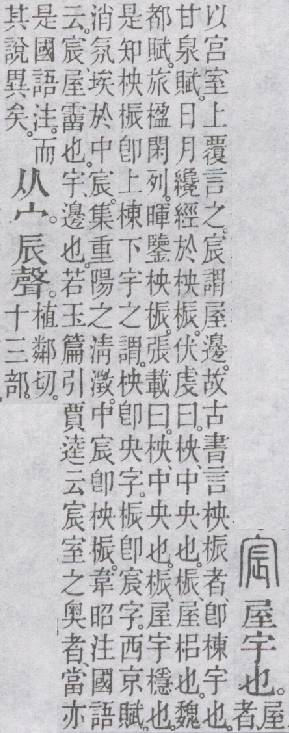 宸屋宇也。屋
者、
以宮室上覆言之。宸謂屋邊。故古書言柍桭者、卽棟宇也。
甘泉賦。日月纔經於柍桭。伏虔曰。柍、中央也。桭、屋梠也。魏
都賦。旅楹閑列。暉鑒柍桭。張載曰。柍、中央也。桭、屋宇穩也。
是知柍桭卽上棟下宇之謂。柍卽央字。桭卽宸字。西京賦。
消氛埃於中宸。集重陽之淸澂。中宸卽柍桭。韋昭注國語
云。宸、屋霤也。宇、邊也。若玉篇引賈逵云。宸、室之奧者、當亦
是國語注。而
其說異矣。
从宀。辰聲。
植鄰切。
十三部。